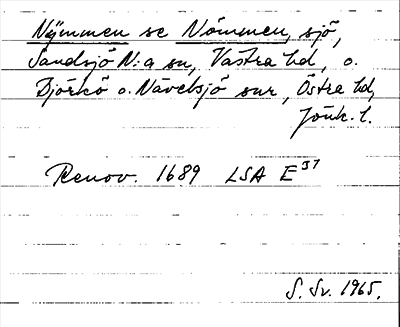 Nymmen se Nömmen, sjö,
Sandsjö N:a sn, Västra hd, o.
Björkö o. Nävelsjö snr, Östra hd,
Jönk. l.
Renov. 1689 LSA E37
S. Sv. 1965.